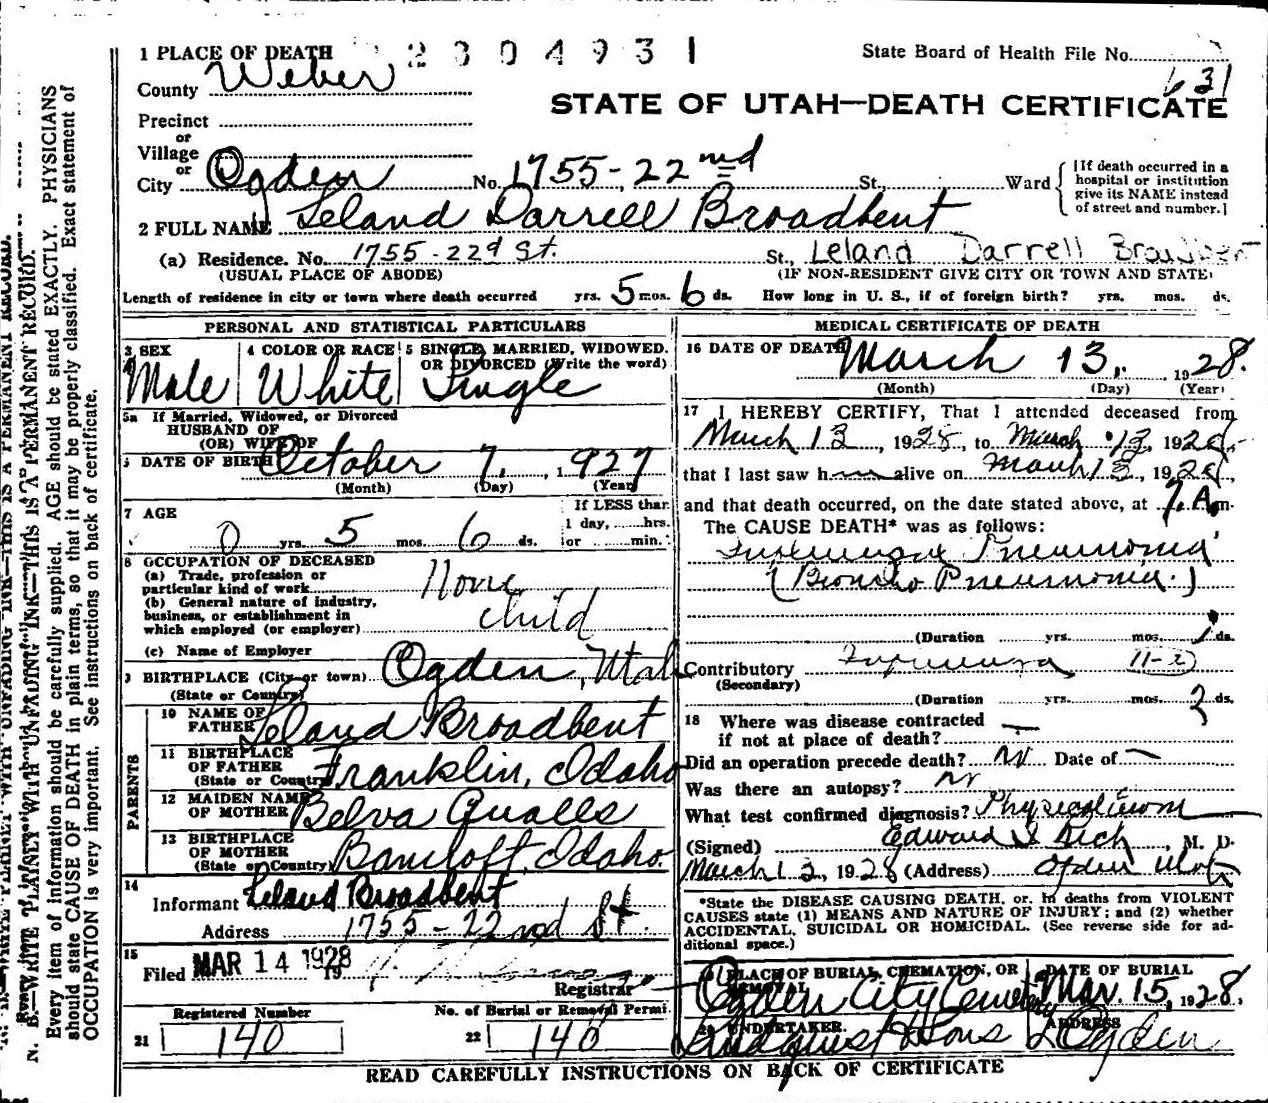 1 PLACE OF DEATH 2304931 State Board of Health File No.
County Weber 631
STATE OF UTAH—DEATH CERTIFICATE
Precinct
or
Village
or
City Ogden No. 1755-22nd St., Ward
[If death occurred in a
hospital or institution
give its NAME instead
of street and number.]
2 FULL NAME Leland Darrell Broadbent
(a) Residence. No. 1755-22d St. St., Leland Darrell
(USUAL PLACE OF ABODE) (IF NON-RESIDENT GIVE CITY OR TOWN AND STATE)
Length of residence in city or town where death occurred yrs. 5 mos. 6 ds. How long in U. S., if of foreign birth? yrs. mos. ds.
PERSONAL AND STATISTICAL PARTICULARS
3 SEX
Male
4 COLOR OR RACE
White
5 SINGLE, MARRIED, WIDOWED.
OR DIVORCED (Write the word)
Single
5a If Married, Widowed, or Divorced
HUSBAND OF
(OR) WIFE OF
6 DATE OF BIRTH October 7, 1927
(Month) (Day) (Year)
7 AGE
0 yrs. 5 mos. 6 ds.
If LESS than
1 day, hrs.
or min.
8 OCCUPATION OF DECEASED
(a) Trade, profession or
particular kind of work None
(b) General nature of industry,
business, or establishment in
which employed (or employer) child
(c) Name of Employer
9 BIRTHPLACE (City or town) Ogden, Utah
(State or Country)
PARENTS
10 NAME OF
FATHER Leland Broadbent
11 BIRTHPLACE
OF FATHER
(State or Country) Franklin, Idaho
12 MAIDEN NAME
OF MOTHER Belva Qualls
13 BIRTHPLACE
OF MOTHER
(State or Country) Bancroft, Idaho.
14
Informant Leland Broadbent
Address 1755-22nd St
15
Filed MAR 14 1928
19
Registrar
Registered Number
21 140
No. of Burial or Removal Permit
22 140
MEDICAL CERTIFICATE OF DEATH
16 DATE OF DEATH March 13, 1928.
(Month) (Day) (Year)
17 I HEREBY CERTIFY, That I attended deceased from
March 13, 1928 to March 13, 1928,
that I last saw h alive on March 13, 1928,
and that death occurred, on the date stated above, at 7 A m.
The CAUSE DEATH* was as follows:
Pneumonia
(Broncho Pneumonia.)
(Duration yrs. mos. ds.
Contributory
(Secondary)
(Duration yrs. mos. 2 ds.
18 Where was disease contracted
if not at place of death? —
Did an operation precede death? No Date of —
Was there an autopsy? No
What test confirmed diagnosis?
(Signed) Edward I Rich, M. D.
March 13, 1928 (Address) Ogden Utah
*State the DISEASE CAUSING DEATH, or, in deaths from VIOLENT
CAUSES state (1) MEANS AND NATURE OF INJURY; and (2) whether
ACCIDENTAL, SUICIDAL OR HOMICIDAL. (See reverse side for ad-
ditional space.)
19 PLACE OF BURIAL, CREMATION, OR
REMOVAL
Ogden City Cemetery
DATE OF BURIAL
Mar. 15, 1928.
20 UNDERTAKER.
Lindquist & Sons
ADDRESS
Ogden
READ CAREFULLY INSTRUCTIONS ON BACK OF CERTIFICATE
N. B.—WRITE PLAINLY WITH UNFADING INK—THIS IS A PERMANENT RECORD.
Every item of information should be carefully supplied. AGE should be stated EXACTLY. PHYSICIANS
should state CAUSE OF DEATH in plain terms, so that it may be properly classified. Exact statement of
OCCUPATION is very important. See instructions on back of certificate.